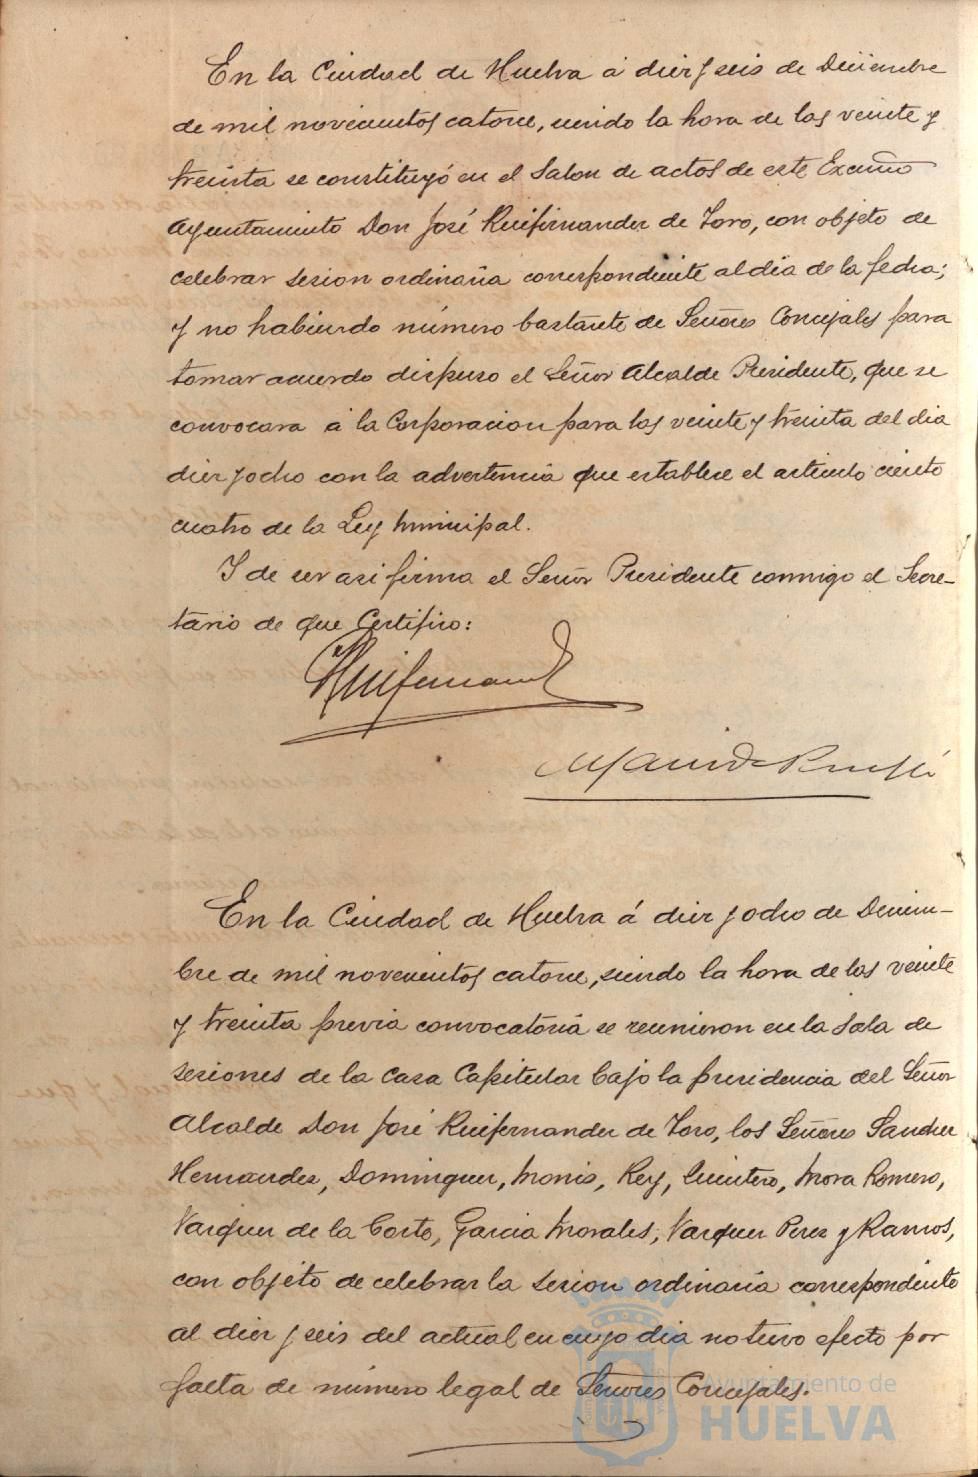 En la Ciudad de Huelva á diez y seis de Diciembre
de mil novecientos catorce, siendo la hora de las veinte y
treinta se constituyó en el Salon de actos de este Excmo
Ayuntamiento Don José Ruifernandez de Toro, con objeto de
celebrar sesion ordinaria correspondiente al dia de la fecha;
y no habiendo número bastante de Señores Concejales para
tomar acuerdo dispuso el Señor Alcalde Presidente, que se
convocara á la Corporacion para las veinte y treinta del dia
diez y ocho con la advertencia que establece el articulo ciento
cuatro de la Ley municipal.
Y de ser asi firma el Señor Presidente conmigo el Secre-
tario de que Certifico:
Ruifernandez
En la Ciudad de Huelva á diez y ocho de Diciem-
bre de mil novecientos catorce, siendo la hora de las veinte
y treinta previa convocatoria se reunieron en la Sala de
sesiones de la Casa Capitular bajo la presidencia del Señor
Alcalde Don José Ruifernandez de Toro, los Señores Sanchez
Hernandez, Dominguez, Monis, Rey, Quintero, Mora Romero,
Vazquez de la Corte, Garcia Morales, Vazquez Perez y Ramos,
con objeto de celebrar la sesion ordinaria correspondiente
al diez y seis del actual en cuyo dia no tuvo efecto por
falta de número legal de Señores Concejales.
Ayuntamiento de
HUELVA